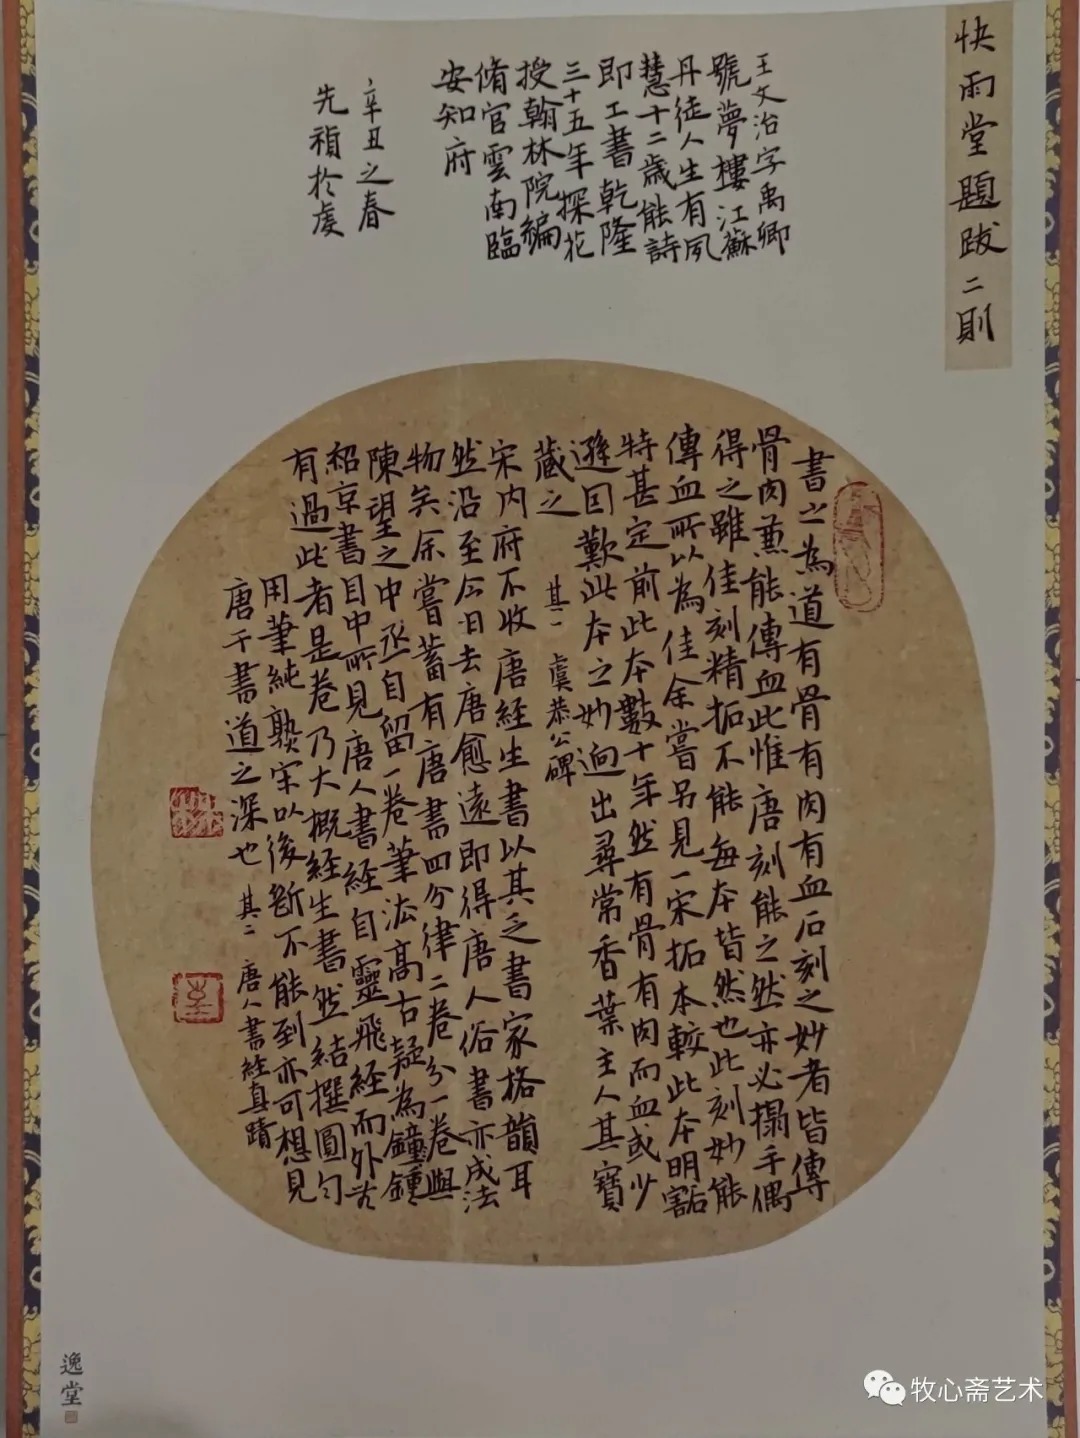 快雨堂題跋二則
王文治字禹卿
號夢樓江蘇
丹徒人生有夙
慧十二歲能詩
即工書乾隆
三十五年探花
授翰林院編
脩官雲南臨
安知府
辛丑之春
先禎於虞
書之為道有骨有肉有血石刻之妙者皆傳
骨肉兼能傳血此惟唐刻能之然亦必搨手偶
得之雖佳刻精拓不能每本皆然也此刻妙能
傳血所以為佳余嘗另見一宋拓本較此本明豁
特甚定前此本數十年然有骨有肉而血或少
遜因歎此本之妙迥出尋常香葉主人其寶
藏之
其一 虞恭公碑
宋内府不收唐經生書以其乏書家格韻耳
然沿至今日去唐愈遠即得唐人俗書亦成法
物矣余嘗蓄有唐書四分律二卷分一卷與
陳望之中丞自留一卷筆法高古疑為鐘鍾
紹京書目中所見唐人書經自靈飛經而外豈
有過此者是卷乃大概經生書然結撰圓勻
用筆純熟宋以後斷不能到亦可想見
唐干書道之深也 其二 唐人書經真蹟
逸堂
牧心斋艺术